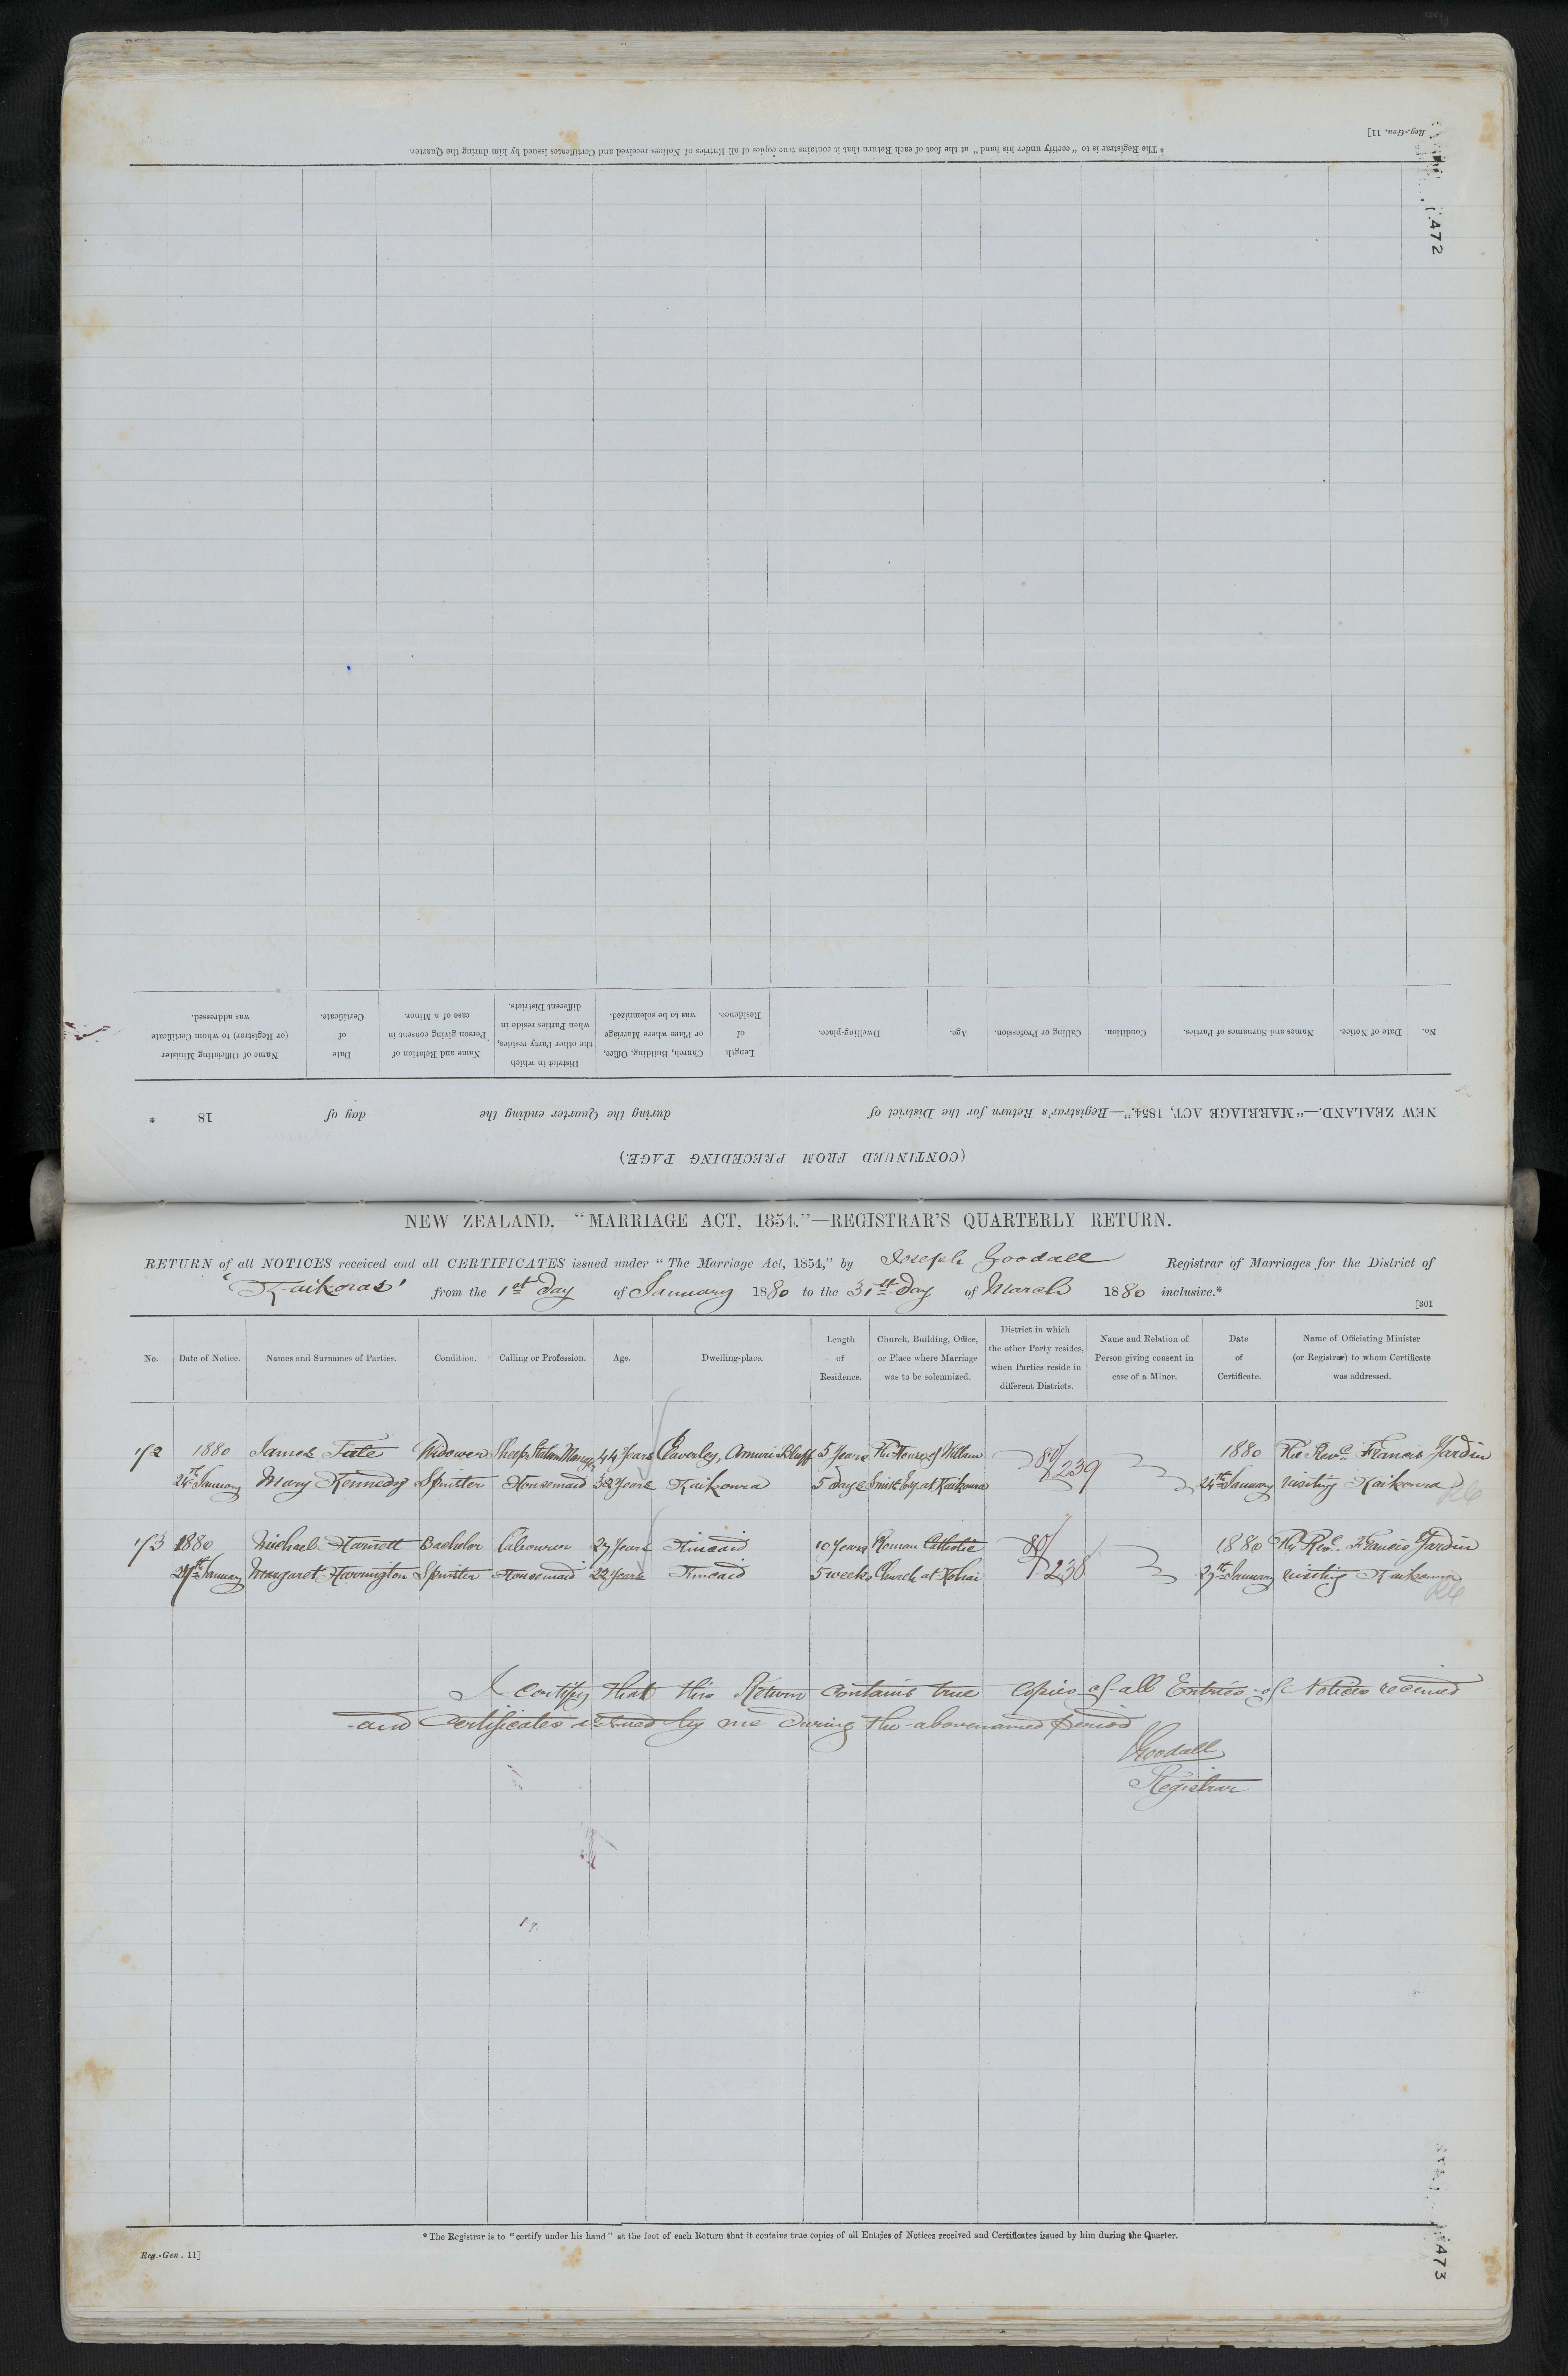 Reg.-Gen. 11]
* The Registrar is to "certify under his hand" at the foot of each Return that it contains true copies of all Entries of Notices received and Certificates issued by him during the Quarter.
472
(CONTINUED FROM PRECEDING PAGE.)
NEW ZEALAND.—"MARRIAGE ACT, 1854."—Registrar's Return for the District of during the Quarter ending the day of 18 *
No. Date of Notice. Names and Surnames of Parties. Condition. Calling or Profession. Age. Dwelling-place. Length of Residence. Church, Building, Office, or Place where Marriage was to be solemnized. District in which the other Party resides, when Parties reside in different Districts. Name and Relation of Person giving consent in case of a Minor. Date of Certificate. Name of Officiating Minister (or Registrar) to whom Certificate was addressed.
NEW ZEALAND.—"MARRIAGE ACT, 1854."—REGISTRAR'S QUARTERLY RETURN.
RETURN of all NOTICES received and all CERTIFICATES issued under "The Marriage Act, 1854," by Joseph Goodall Registrar of Marriages for the District of
'Kaikoras' from the 1st day of January 1880 to the 31st day of March 1880 inclusive.*
[301
No. Date of Notice. Names and Surnames of Parties. Condition. Calling or Profession. Age. Dwelling-place. Length of Residence. Church, Building, Office, or Place where Marriage was to be solemnized. District in which the other Party resides, when Parties reside in different Districts. Name and Relation of Person giving consent in case of a Minor. Date of Certificate. Name of Officiating Minister (or Registrar) to whom Certificate was addressed.
1880 James Tate Widower Sheep Station Manager 44 Years Claverley, Amuri Bluff 5 Years The House of William 80/239 1880 The Revd. Francis Yardin
24th January Mary Kennedy Spinster Housemaid 32 Years Kaikoura 5 days Smith Esq. at Kaikoura 24th January visiting Kaikoura
1880 Michael Harnett Bachelor Labourer 27 Years Kincaid 10 Years Roman Catholic 80/238 1880 The Revd. Francis Yardin
27th January Margaret Harrington Spinster Housemaid 22 Years Kincaid 5 weeks Church at Kohai 27th January visiting Kaikoura
I certify that this Return contains true copies of all Entries of Notices received
and Certificates issued by me during the abovenamed period
JGoodall
Registrar
* The Registrar is to "certify under his hand" at the foot of each Return that it contains true copies of all Entries of Notices received and Certificates issued by him during the Quarter.
Reg.-Gen. 11]
473